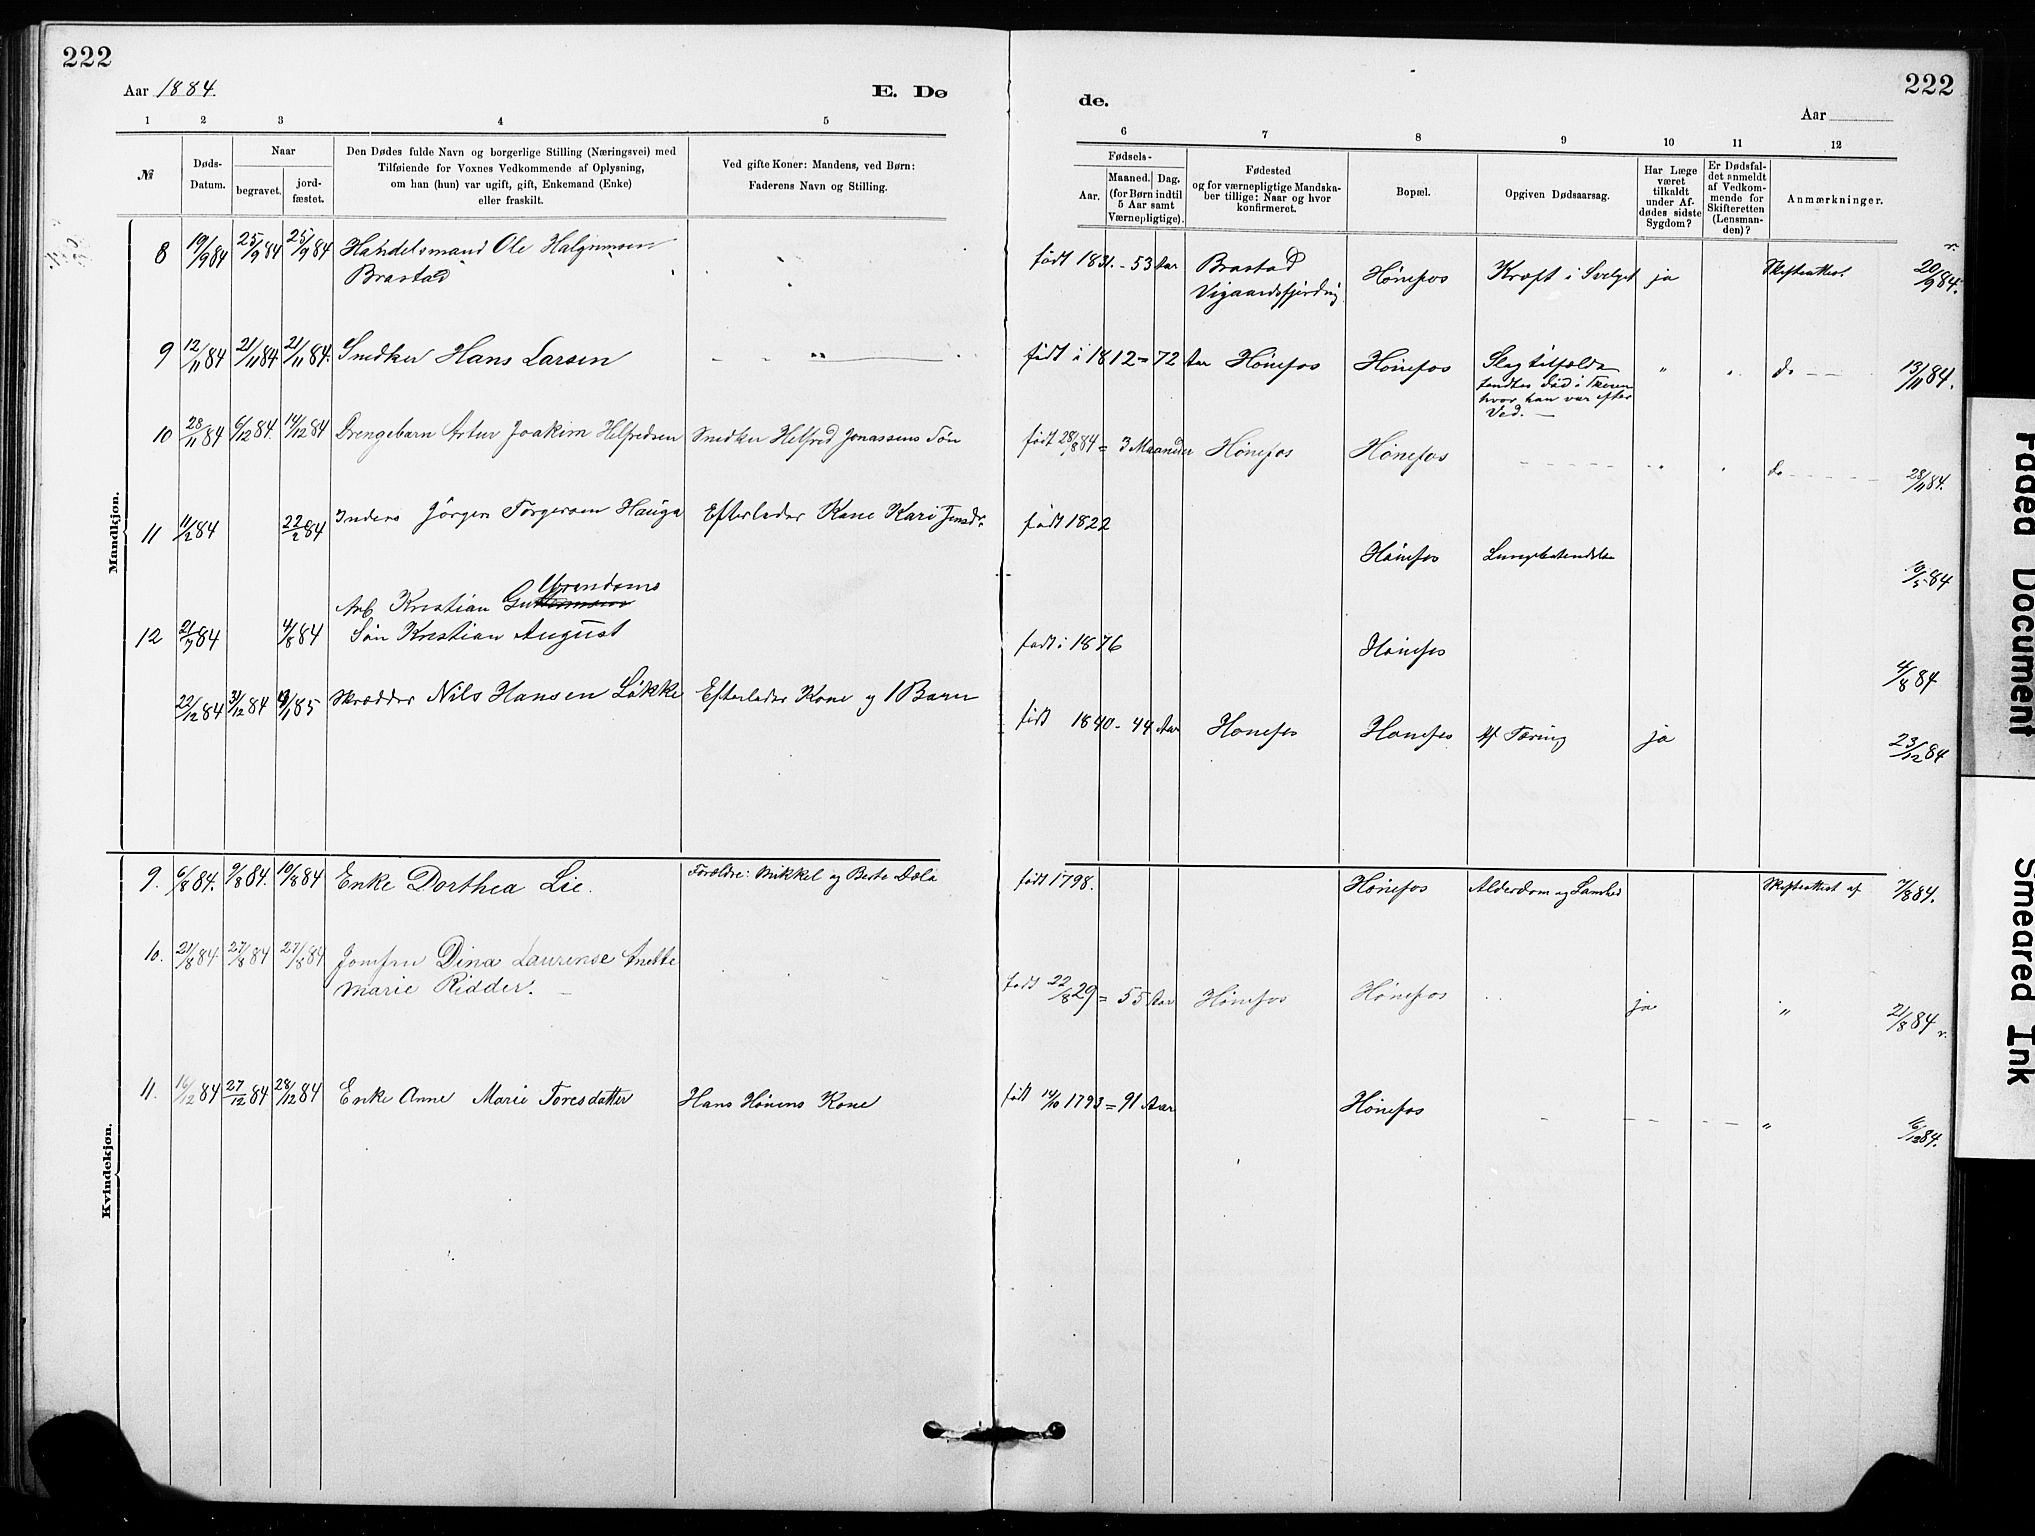 222
222
Aar 1884.
E. Dø
de.
Aar
1 2 3 4 5 6 7 8 9 10 11 12
№
Døds-
Datum.
Naar
begravet.
jord-
fæstet.
Den Dødes fulde Navn og borgerlige Stilling (Næringsvei) med
Tilføiende for Voxnes Vedkommende af Oplysning,
om han (hun) var ugift, gift, Enkemand (Enke)
eller fraskilt.
Ved gifte Koner: Mandens, ved Børn:
Faderens Navn og Stilling.
Fødsels-
Aar.
Maaned. Dag.
(for Børn indtil
5 Aar samt
Værnepligtige).
Fødested
og for værnepligtige Mandska-
ber tillige: Naar og hvor
konfirmeret.
Bopæl.
Opgiven Dødsaarsag.
Har Læge
været
tilkaldt
under Af-
dødes sidste
Sygdom?
Er Dødsfal-
det anmeldt
af Vedkom-
mende for
Skifteretten
(Lensman-
den)?
Anmærkninger.
Mandkjøn.
8 19/9 84 25/9 84 25/9 84 Handelsmand Ole
Brastad
født 1831. - 53 Aar Brastad Hønefos Kræft i Svelget ja Skifteattest 20/9 84.
9 12/11 84 21/11 84 21/11 84. Snedker Hans Larsen — " —
født i 1812 = 72 Aar Hønefos Hønefos Slagtilfælde " do - - - 13/11 84.
fandtes død i
hvor han var efter
Ved. —
10 28/11 84 6/12 84. 14/12 84 Drengebarn Artur Joakim Helfredsen Snedker Helfred Jonassens Søn
født 28/8 84 = 3 Maaneder Hønefos Hønefos - - - - do - - - - 28/11 84.
11 11/2 84 22/2 84 Inders Jørgen Torgersen Hauga Efterlader Kone Kari Jensdr.
født 1822 Hønefos Lungebetendelse
Urendoms
Arb. Kristian
12 21/7 84 4/8 84 Søn Kristian August
født i 1876 Hønefos 4/8 84
22/12 84 31/12 84 Skrædder Nils Hansen Løkke Efterlader Kone og 1 Barn
født 1840 - 44 Aar Hønefos Hønefos Af Tæring ja 23/12 84
Kvindekjøn.
9. 6/8 84. 9/8 84. 19/8 84 Enke Dorthea Lie. Forældre: Mikkel og Berte Dæla
født 1798. Hønefos Alderdom og Skifteattest af 7/8 84.
10. 21/8 84. 27/8 84 27/8 84 Jomfru Dina Laurense Anette
Marie Ridder. —
født 22/8 29 = 55 Aar Hønefos Hønefos ja " 21/8 84
11. 16/12 84 27/12 84 28/12 84 Enke Anne Marie Toresdatter Hans Hønens Kone
født 14/10 1793 = 91 Aar Hønefos - - - - " 16/12 84.
Faded Document
Smeared Ink